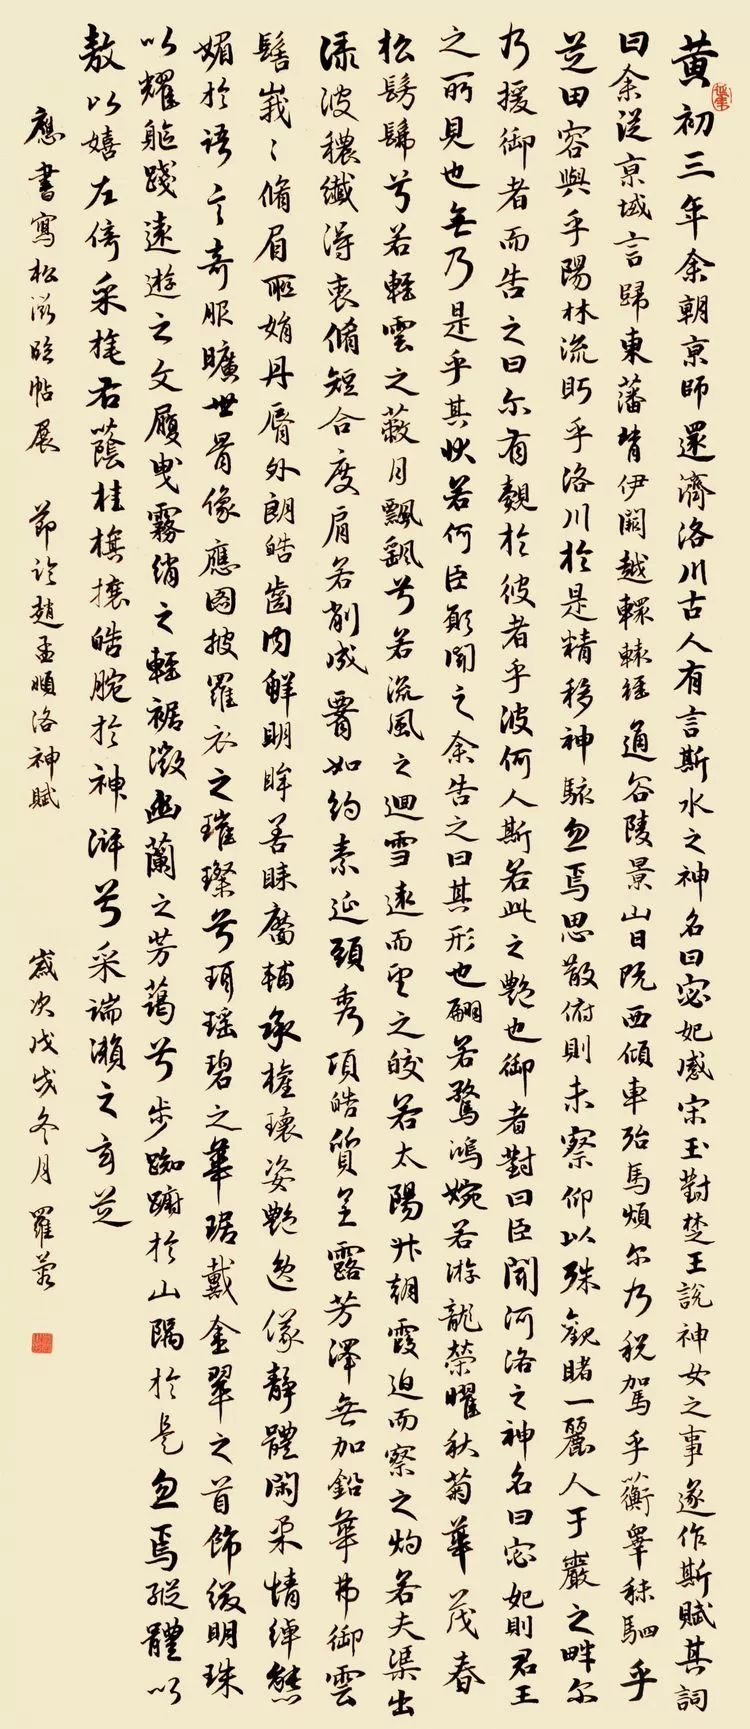 黃初三年余朝京師還濟洛川古人有言斯水之神名曰宓妃感宋玉對楚王說神女之事遂作斯賦其詞
曰余從京域言歸東藩背伊闕越轘轅經通谷陵景山日既西傾車殆馬煩尔乃稅駕乎蘅皋秣駟乎
芝田容與乎陽林流眄乎洛川於是精移神駭忽焉思散俯則未察仰以殊觀睹一麗人于巖之畔尔
乃援御者而告之曰尔有覿於彼者乎彼何人斯若此之艷也御者對曰臣聞河洛之神名曰宓妃則君王
之所見也無乃是乎其狀若何臣願聞之余告之曰其形也翩若驚鴻婉若游龍榮曜秋菊華茂春
松髣髴兮若輕雲之蔽月飄飖兮若流風之迴雪遠而望之皎若太陽升朝霞迫而察之灼若夫渠出
淥波穠纖得衷脩短合度肩若削成腰如約素延頸秀項皓質呈露芳澤無加鉛華弗御雲
髻峩〻脩眉聯娟丹脣外朗皓齒內鮮明眸善睞靨輔承權瓌姿艷逸儀靜體閑柔情綽態
媚於語言奇服曠世骨像應圖披羅衣之璀璨兮珥瑤碧之華琚戴金翠之首飾綴明珠
以耀軀踐遠遊之文履曳霧綃之輕裾微幽蘭之芳藹兮步踟躕於山隅於是忽焉縱體以
敖以嬉左倚采旄右蔭桂旗攘皓腕於神滸兮采湍瀨之玄芝
應書寫松滋臨帖展 節臨趙孟頫洛神賦 歲次戊戌冬月羅